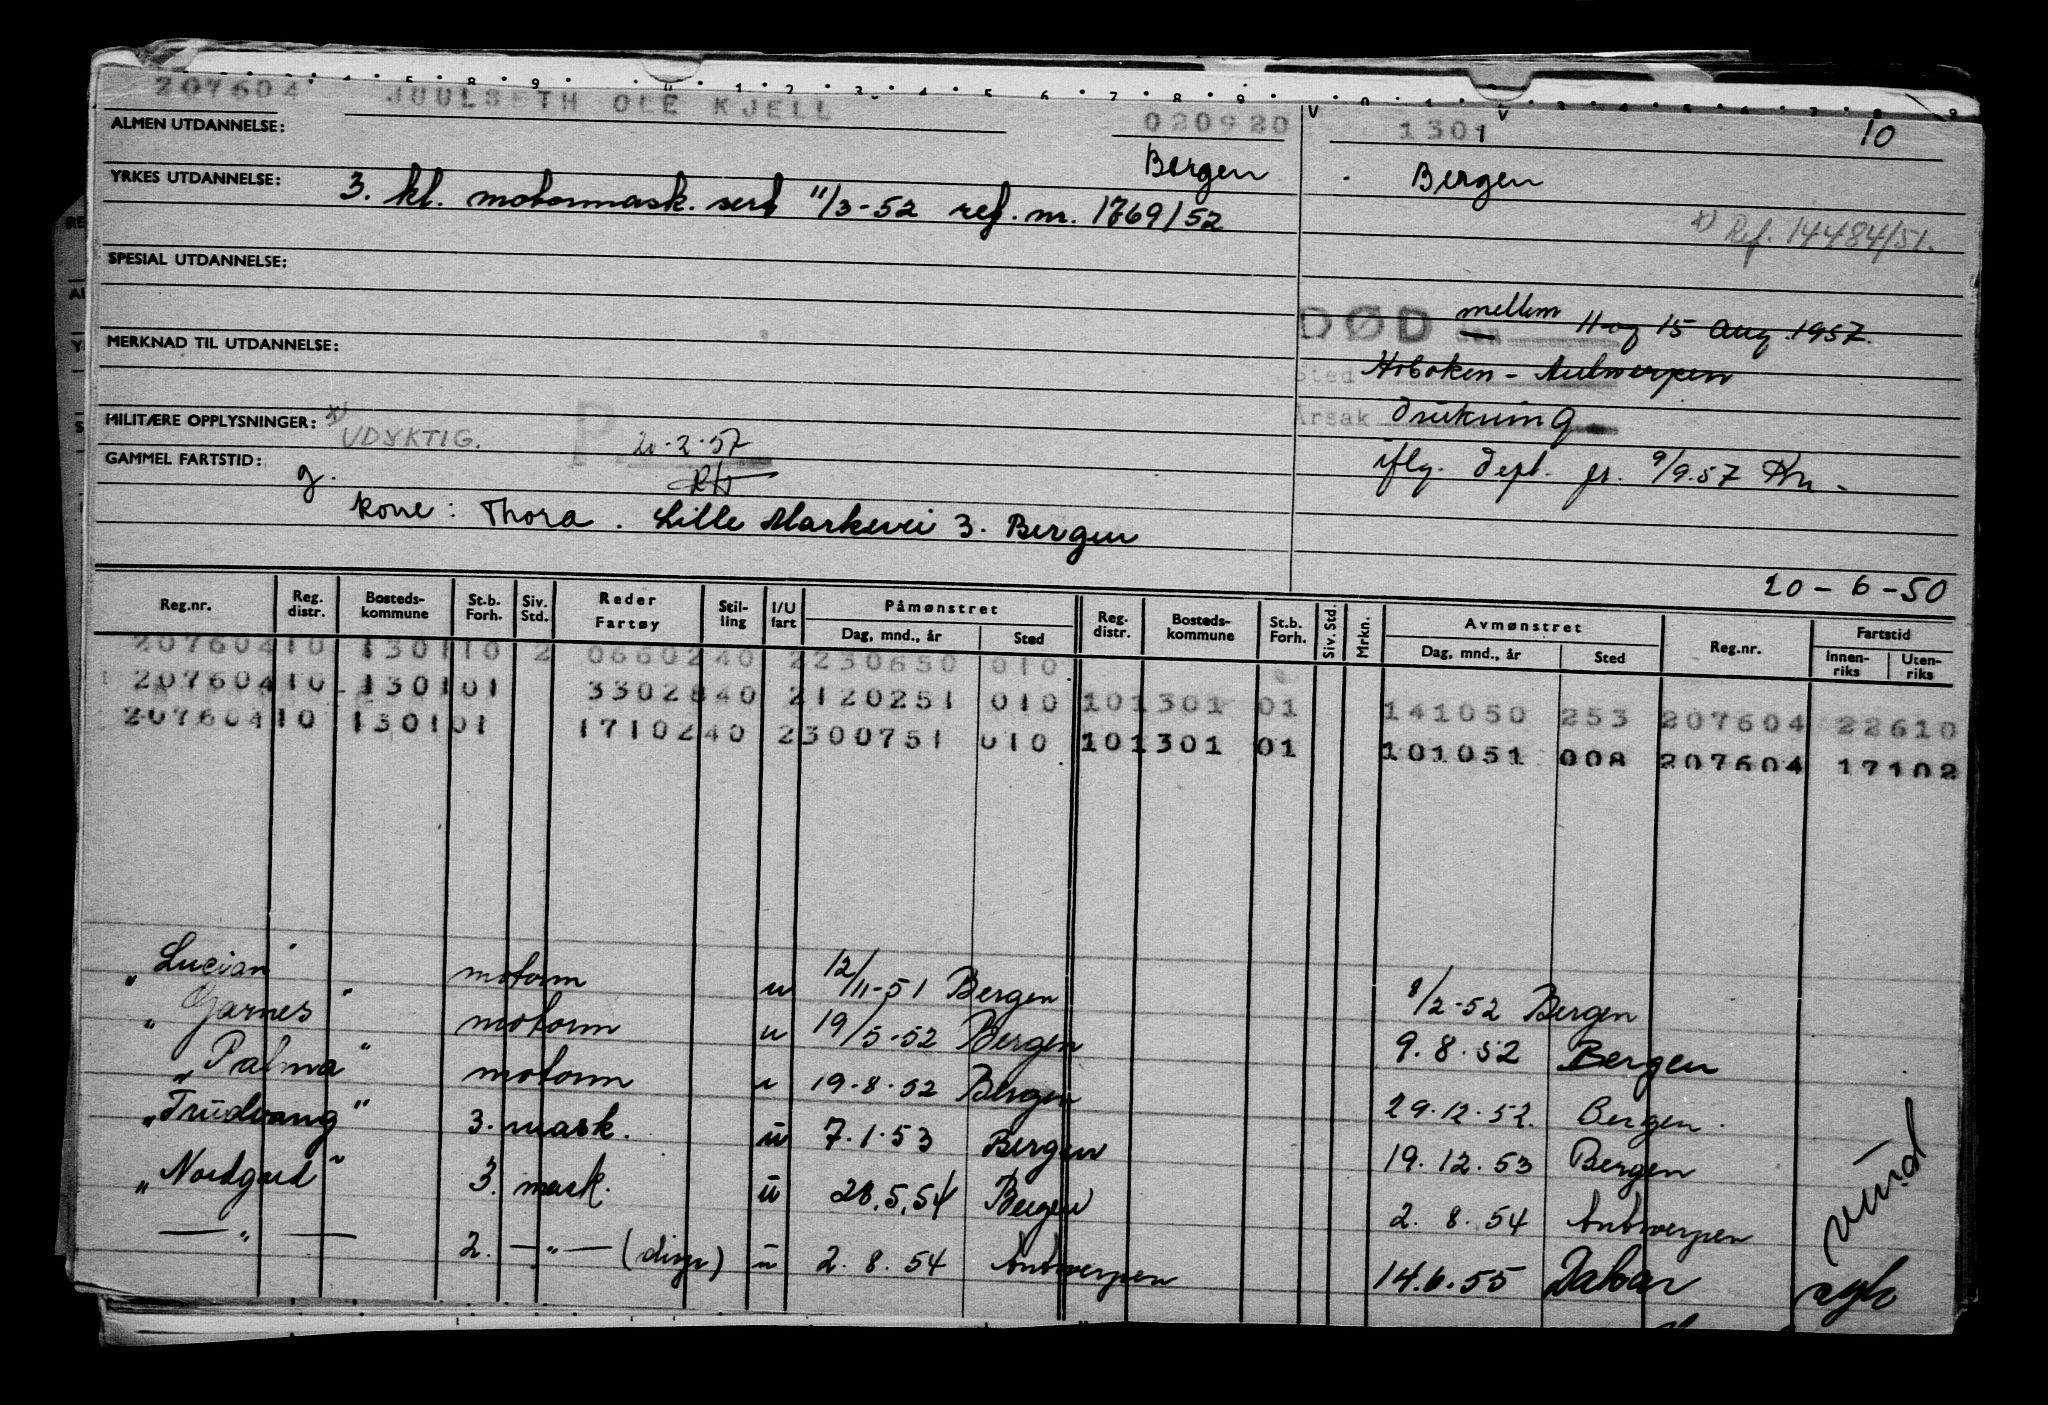 207604 JUULSETH OLE KJELL 020920 1301 10
ALMEN UTDANNELSE: Bergen Bergen
YRKES UTDANNELSE: 3. kl. motormask. sert 11/3-52 ref. nr. 1769/52
x) Ref. 14484/51.
SPESIAL UTDANNELSE:
DØD mellem 11 og 15 Aug. 1957.
MERKNAD TIL UTDANNELSE:
Sted Hoboken - Antwerpen
MILITÆRE OPPLYSNINGER: x) UDYKTIG. P. 20-2-57
Årsak Drukning
GAMMEL FARTSTID: g.
iflg. dept. fr. 9/9.57
kone: Thora. Lille Markevei 3. Bergen
20-6-50
Reg.nr. Reg. distr. Bosteds-kommune St.b. Forh. Siv. Std. Reder Fartøy Stil-ling I/U fart Påmønstret Dag, mnd., år Sted Reg. distr. Bosteds-kommune St.b. Forh. Siv. Std. Mrkn. Avmønstret Dag, mnd., år Sted Reg.nr. Fartstid Innen-riks Uten-riks
207604 10 1301 10 2 06602 40 2 230650 010
207604 10 1301 01 33028 40 2 120251 010 10 1301 01 141050 253 207604 22610
207604 10 1301 01 17102 40 2 300751 010 10 1301 01 101051 008 207604 17102
"Lucian" motorm u 12/11-51 Bergen 8/2-52 Bergen
"Garnes" motorm u 19/5-52 Bergen 9.8.52 Bergen
"Palma" motorm u 19-8-52 Bergen 29.12.52. Bergen.
"Trudvang" 3. mask. u 7.1.53 Bergen 19.12.53 Bergen
"Nordgard" 3. mask. u 28.5.54 Bergen 2.8.54 Antwerpen
— " — 2. — " — (disp) u 2.8.54 Antwerpen 14.6.55 Dakar syk
vund